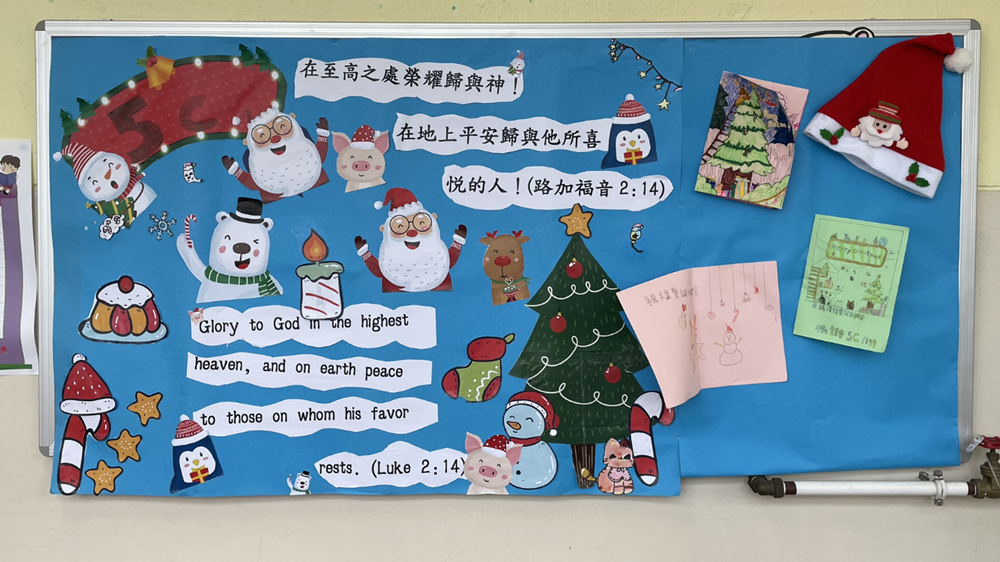 5C
在至高之處榮耀歸與神！
在地上平安歸與他所喜
悅的人！(路加福音 2:14)
Glory to God in the highest
heaven, and on earth peace
to those on whom his favor
rests. (Luke 2:14)
5C